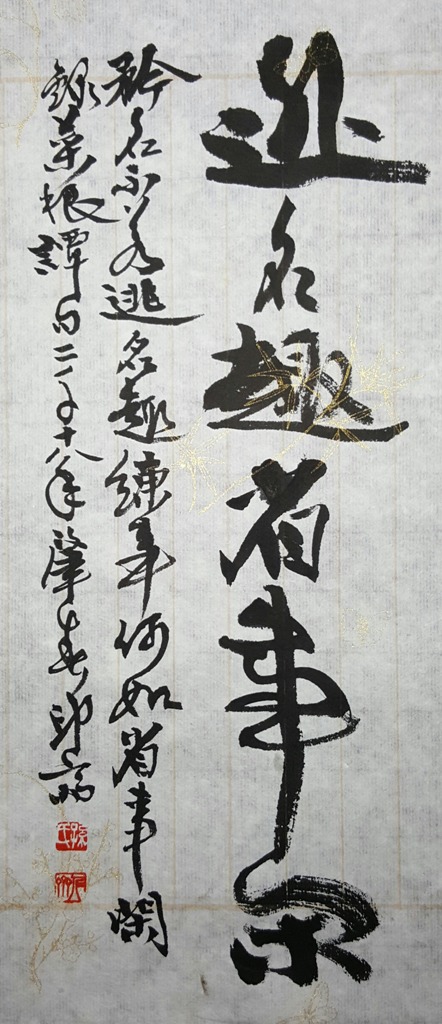 逃名趣省事閑
矜名不若逃名趣練事何如省事閑
錄菜根譚句二千十八年肇春印